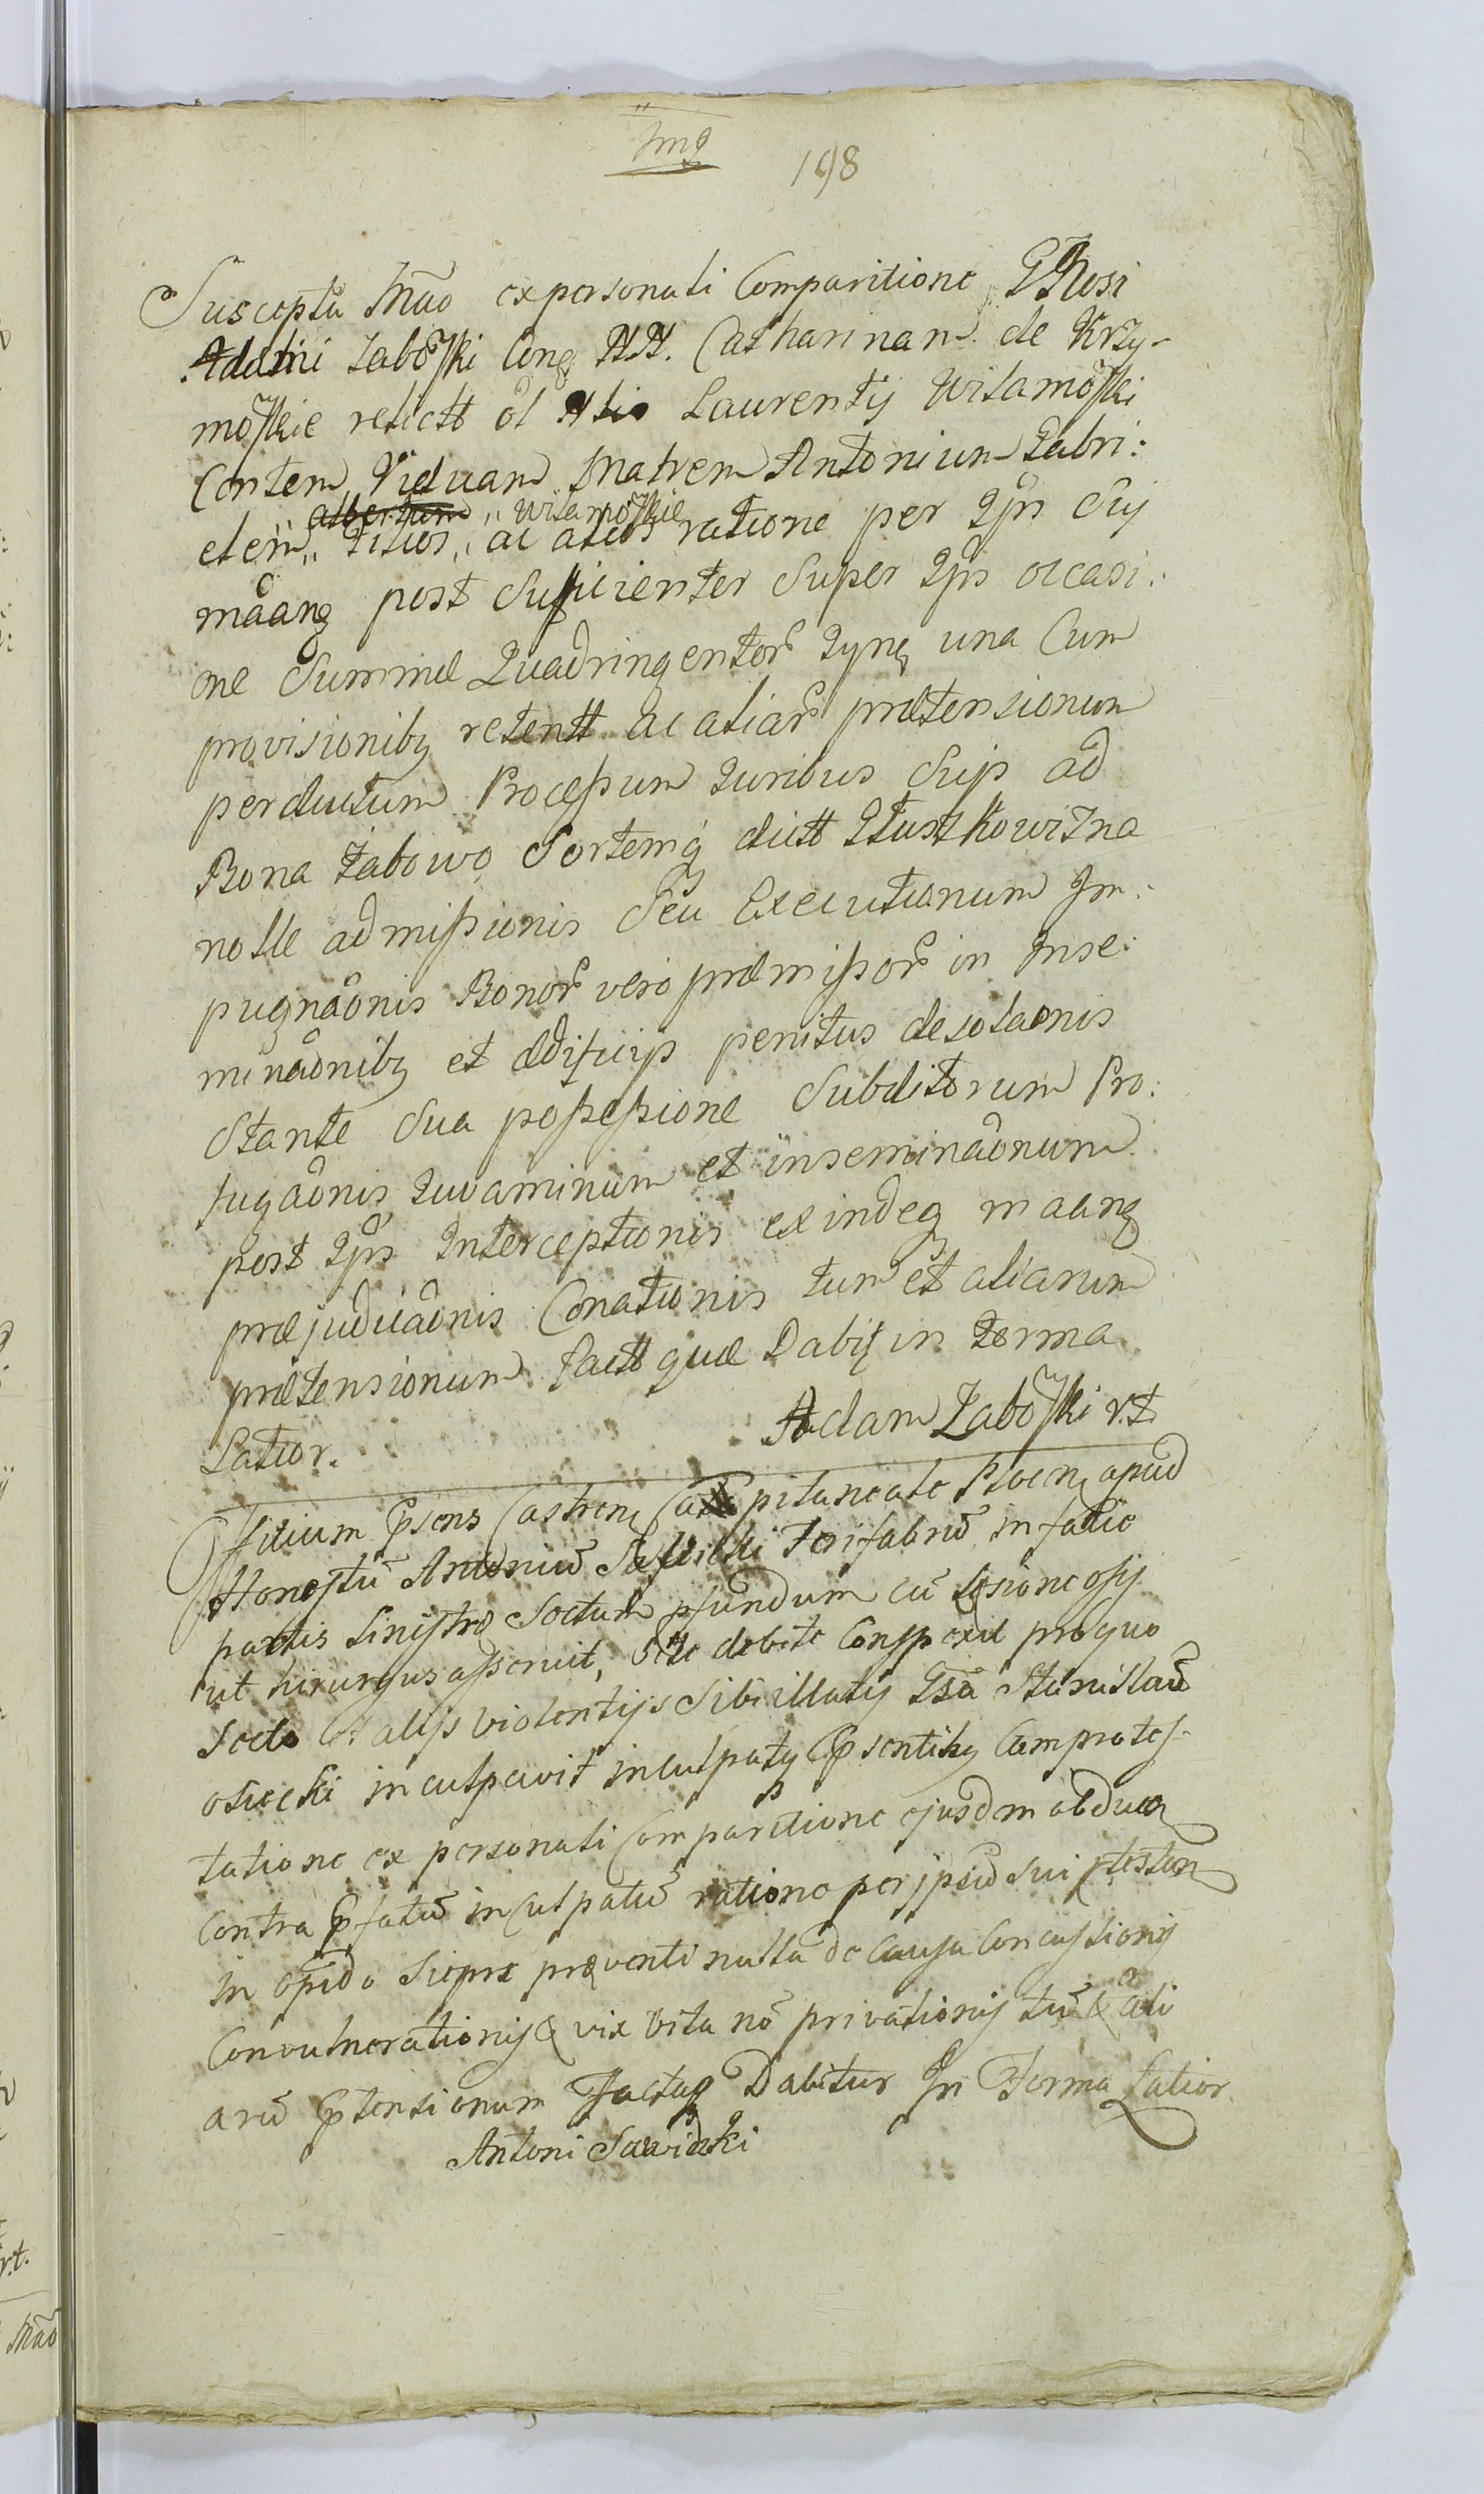 198
Suscepta Mão ex personali Comparitione GRosi
Adami Żaboʃki Conq NN. Catharinam de Krzy-
moʃkie relictt ol Nlis Laurentij Wilamoʃki
Contem Viduam Matrem Antonium Gabri:
elem „ albertum „ Wilamoʃkie
Filios, ac alios ratione per Ips Cuj
post Sufficienter Super Ips occasi:
one Summæ Quadringentor Tynq una Cum
provisionibq retentt ac aliar prætensionum
perductum Processum Juribus Suis ad
Bona Żabowo Sortemq dictt Głustkowizna
nolle admissionis Seu Executionum Im:
pugnãonis Bonor vero præmissor in Inse:
minãonibq et ædificijs penitus desolaonis
Stante Sua possessione Subditorum Pro:
fugãonis Juvaminum et inseminãonum
post Ips Interceptionis exindeq
præjudicãonis Conationis tum et aliarum
prætensionum Factt quæ Dabit in Forma
Latior.
Adam Żaboʃki r.t.
Officium Prsens Castren Capitaneale Plocen apud
Honestũ Antoniũ Ferifabrũ in facie
partis Sinistræ Sectum pfundum cũ Lesione ossis
ut hirurgus asseruit, debite Conspexit pro quo
Secto Et alijs violentijs Sibi illatis Stanislaũ
osiecki inculpavit inculpatq Prsentibq Cum protes-
tatione ex personali Comparitione ejusdem obducen
Contra Prfatũ inculpatũ ratione per ipsũ Sui ptesten
in opido Sierpr præventi nulla de Causa Concussionis
Convulnerationis & vix vita nõ privationis tũ & ali
arũ Prtensionum Factaq Dabitur In Forma Latior
Antoni Sawicki